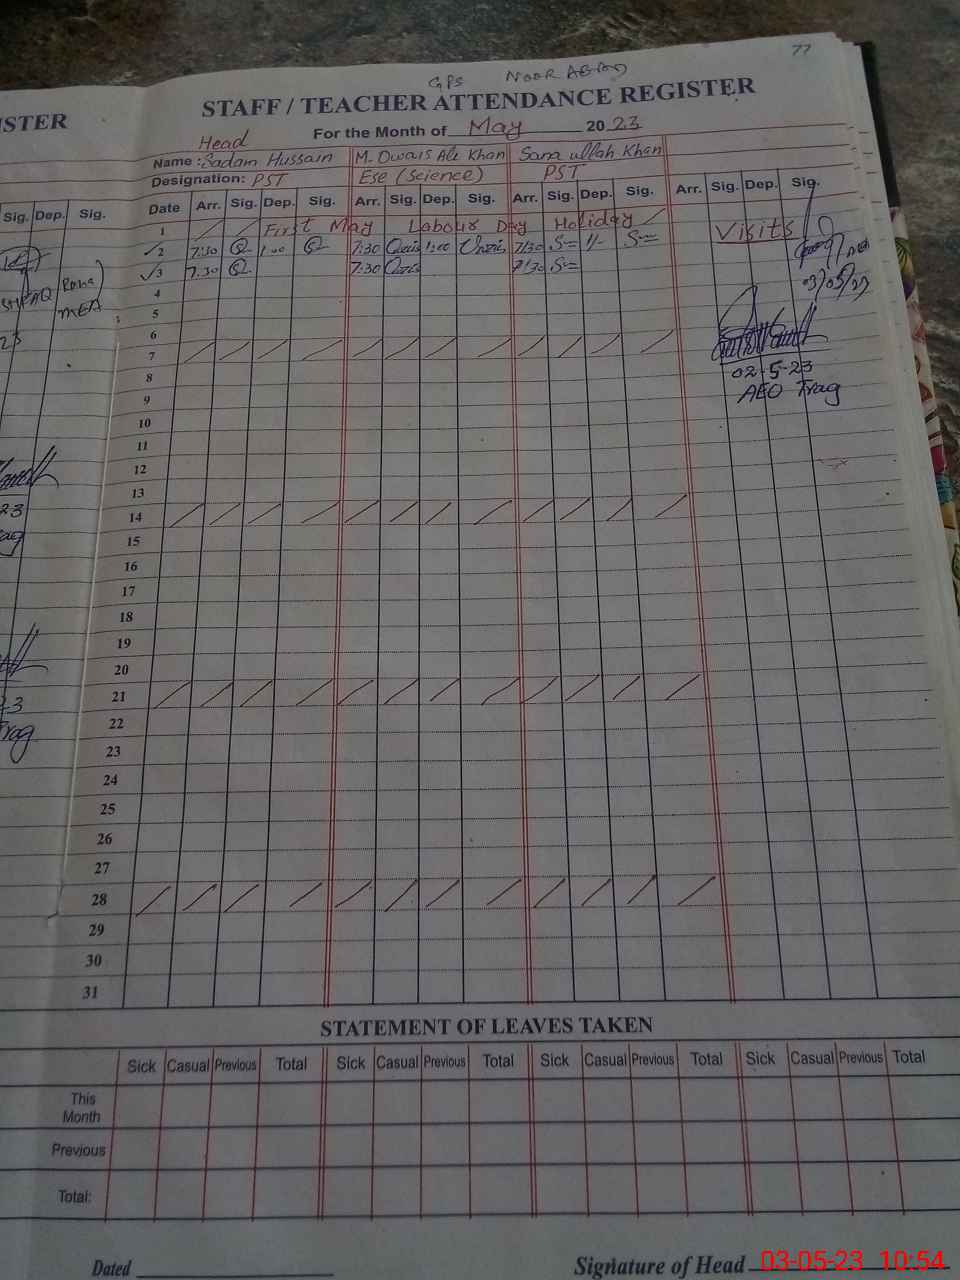 77
GPS NOOR ABAD
ISTER STAFF / TEACHER ATTENDANCE REGISTER
For the Month of May 2023
Head
Name : Sadam Hussain M. Owais Ali Khan Sana ullah Khan
Designation: PST Ese (Science) PST
Sig. Dep. Sig. Date Arr. Sig. Dep. Sig. Arr. Sig. Dep. Sig. Arr. Sig. Dep. Sig. Arr. Sig. Dep. Sig.
1 First May Labour Day Holiday Visits
2 7:30 1:00 7:30 1:00 7:30 1/-
3 7:30 7:30 7:30
03/05/23
MEA
4
5
6
23
7
02-5-23
8
AEO Trag
9
10
11
12
13
14
23
15
16
17
18
19
20
21
22
Trag
23
24
25
26
27
28
29
30
31
STATEMENT OF LEAVES TAKEN
Sick Casual Previous Total Sick Casual Previous Total Sick Casual Previous Total Sick Casual Previous Total
This
Month
Previous
Total:
Dated Signature of Head
03-05-23 10:54